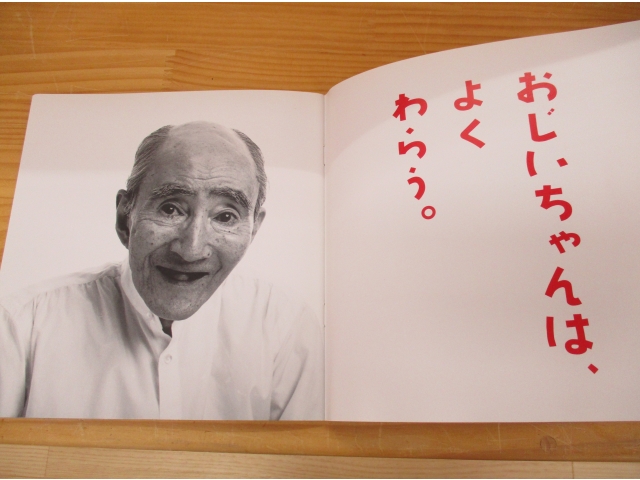 おじいちゃんは、
よく
わらう。